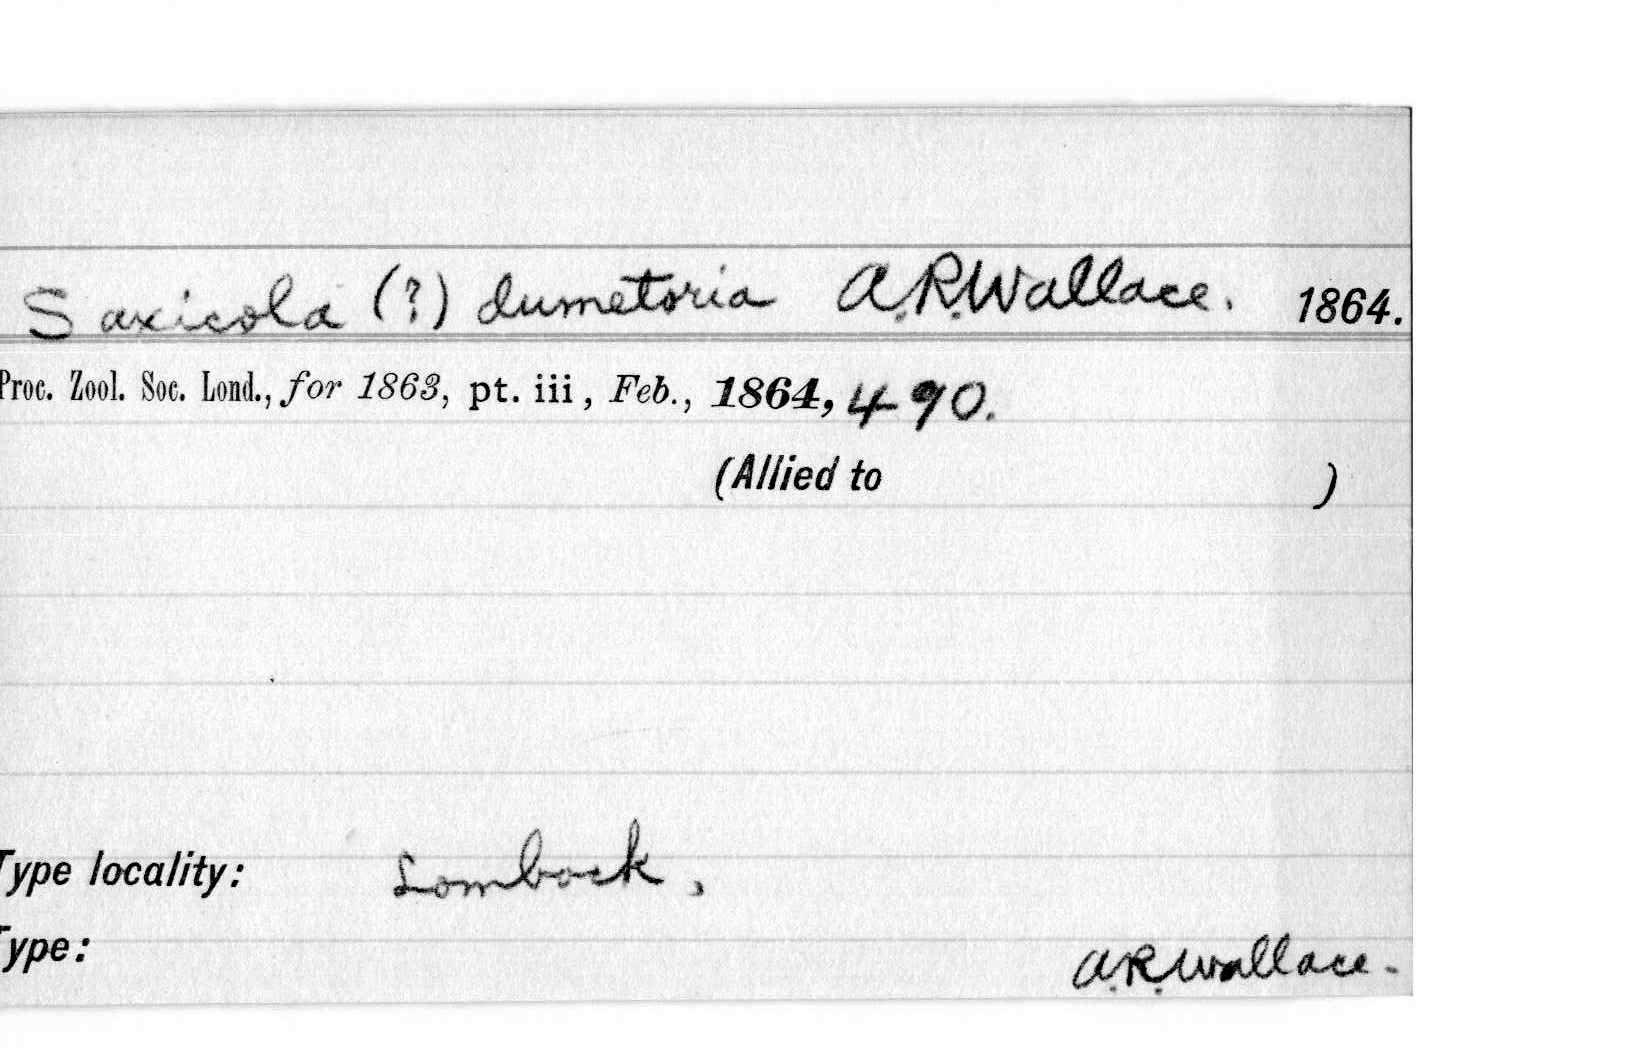 Saxicola (?) dumetoria A.R.Wallace. 1864.
Proc. Zool. Soc. Lond., for 1863, pt. iii, Feb., 1864, 490.
(Allied to )
Type locality: Lombock,
Type: A.R.Wallace.